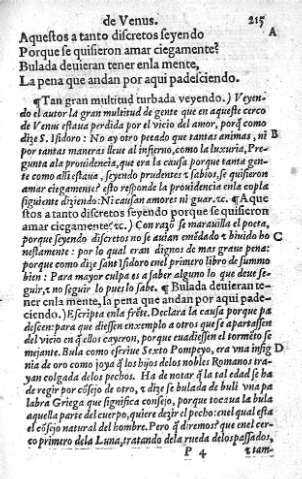 de Venus. 215
Aquestos a tanto discretos seyendo A
Porque se quisieron amar ciegamente?
Bulada deuieran tener enla mente,
La pena que andan por aqui padesciendo.
¶ Tan gran multitud turbada veyendo.) Veyen-
do el autor la gran multitud de gente que en aqueste cerco
de Venus estaua perdida por el vicio del amor, porq̃ como
dize S. Isidoro: No ay otro pecado que tantas animas, ni B
por tantas maneras lleue al infierno, como la luxuria, Pre-
gunta ala prouidencia, que era la causa porque tanta gen-
te como alli estaua, seyendo prudentes ⁊ sabios, se quisieron
amar ciegamente? esto responde la prouidencia enla copla
siguiente diziendo: Ni causan amores ni guar. ⁊c. ¶ Aque
stos a tanto discretos seyendo porque se quisieron
amar ciegamente? ⁊c.) Con razõ se marauilla el poeta,
porque seyendo discretos no se auian emẽdado ⁊ biuido ho C
nestamente: por lo qual eran dignos de mas graue pena:
porque como dize sant Isidoro enel primero libro de summo
bien: Para mayor culpa es a saber alguno lo que deue se-
guir, ⁊ no seguir lo pues lo sabe. ¶ Bulada deuieran te-
ner enla mente, la pena que andan por aqui pade-
ciendo.) Escripta enla frẽte. Declara la causa porque pa
descen: para que diessen enxemplo a otros que se apartassen
del vicio en q̃ ellos cayeron, porque euadiessen el tormẽto se
mejante. Bula como escriue Sexto Pompeyo, era vna insig D
nia de oro como joya q̃ los hijos delos nobles Romanos tra-
yan colgada delos pechos. Ha de notar q̃ la tal edad se ha
de regir por cõsejo de otro, ⁊ dize se bulada de buli vna pa
labra Griega que significa consejo, porque tocaua la bula
aquella parte del cuerpo, quiere dezir el pecho: enel qual esta
el cõsejo natural del hombre. Pero q̃ diremos? que enel cer-
co primero dela Luna, tratando dela rueda delos passados,
P 4 ⁊ tam-